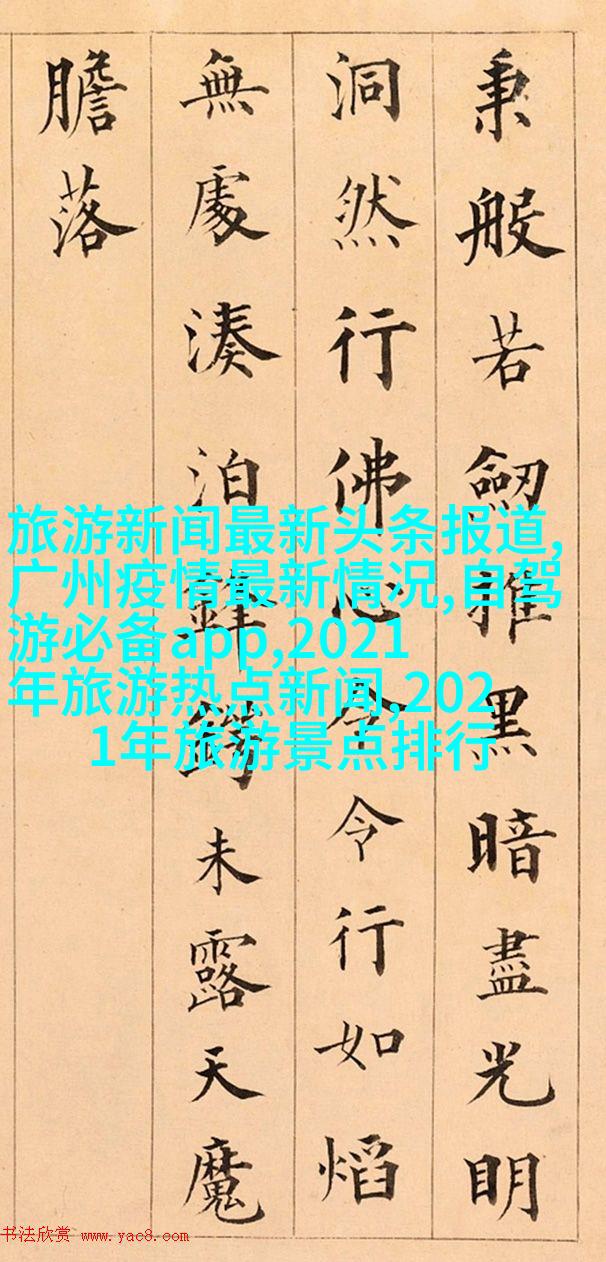 秉般若劒推黑暗盡光明
洞然行佛心令令行如熖
無處湊泊鋒鍔未露天魔
膽落
旅游新闻最新头条报道,
广州疫情最新情况,自驾
游必备app,2021
年旅游热点新闻,202
1年旅游景点排行
书法欣赏 www.yac8.com